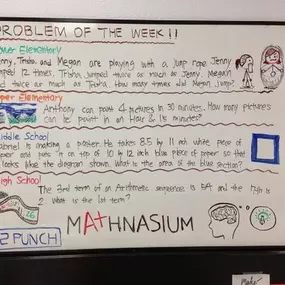 PROBLEM OF THE WEEK!!
Lower Elementary
Jenny, Trisha, and Megan are playing with a jump rope. Jenny
jumped 12 times, Trisha jumped twice as much as Jenny. Megan
twice as much as Trisha. How many times did Megan jump?
Upper Elementary
Anthony can paint 4 pictures in 30 minutes. How many pictures
can he paint in an Hour & 15 minutes?
Middle School
is making a poster. He takes 8.5 by 11 inch white piece of
paper and on top of 10 by 12 inch blue piece of paper so that
looks like the diagram shown. What is the area of the blue section?
High School
The 3rd term of an Arithmetic sequence is 54 and the 17th is
2 what is the 1st term?
MATHNASIUM
2 PUNCH